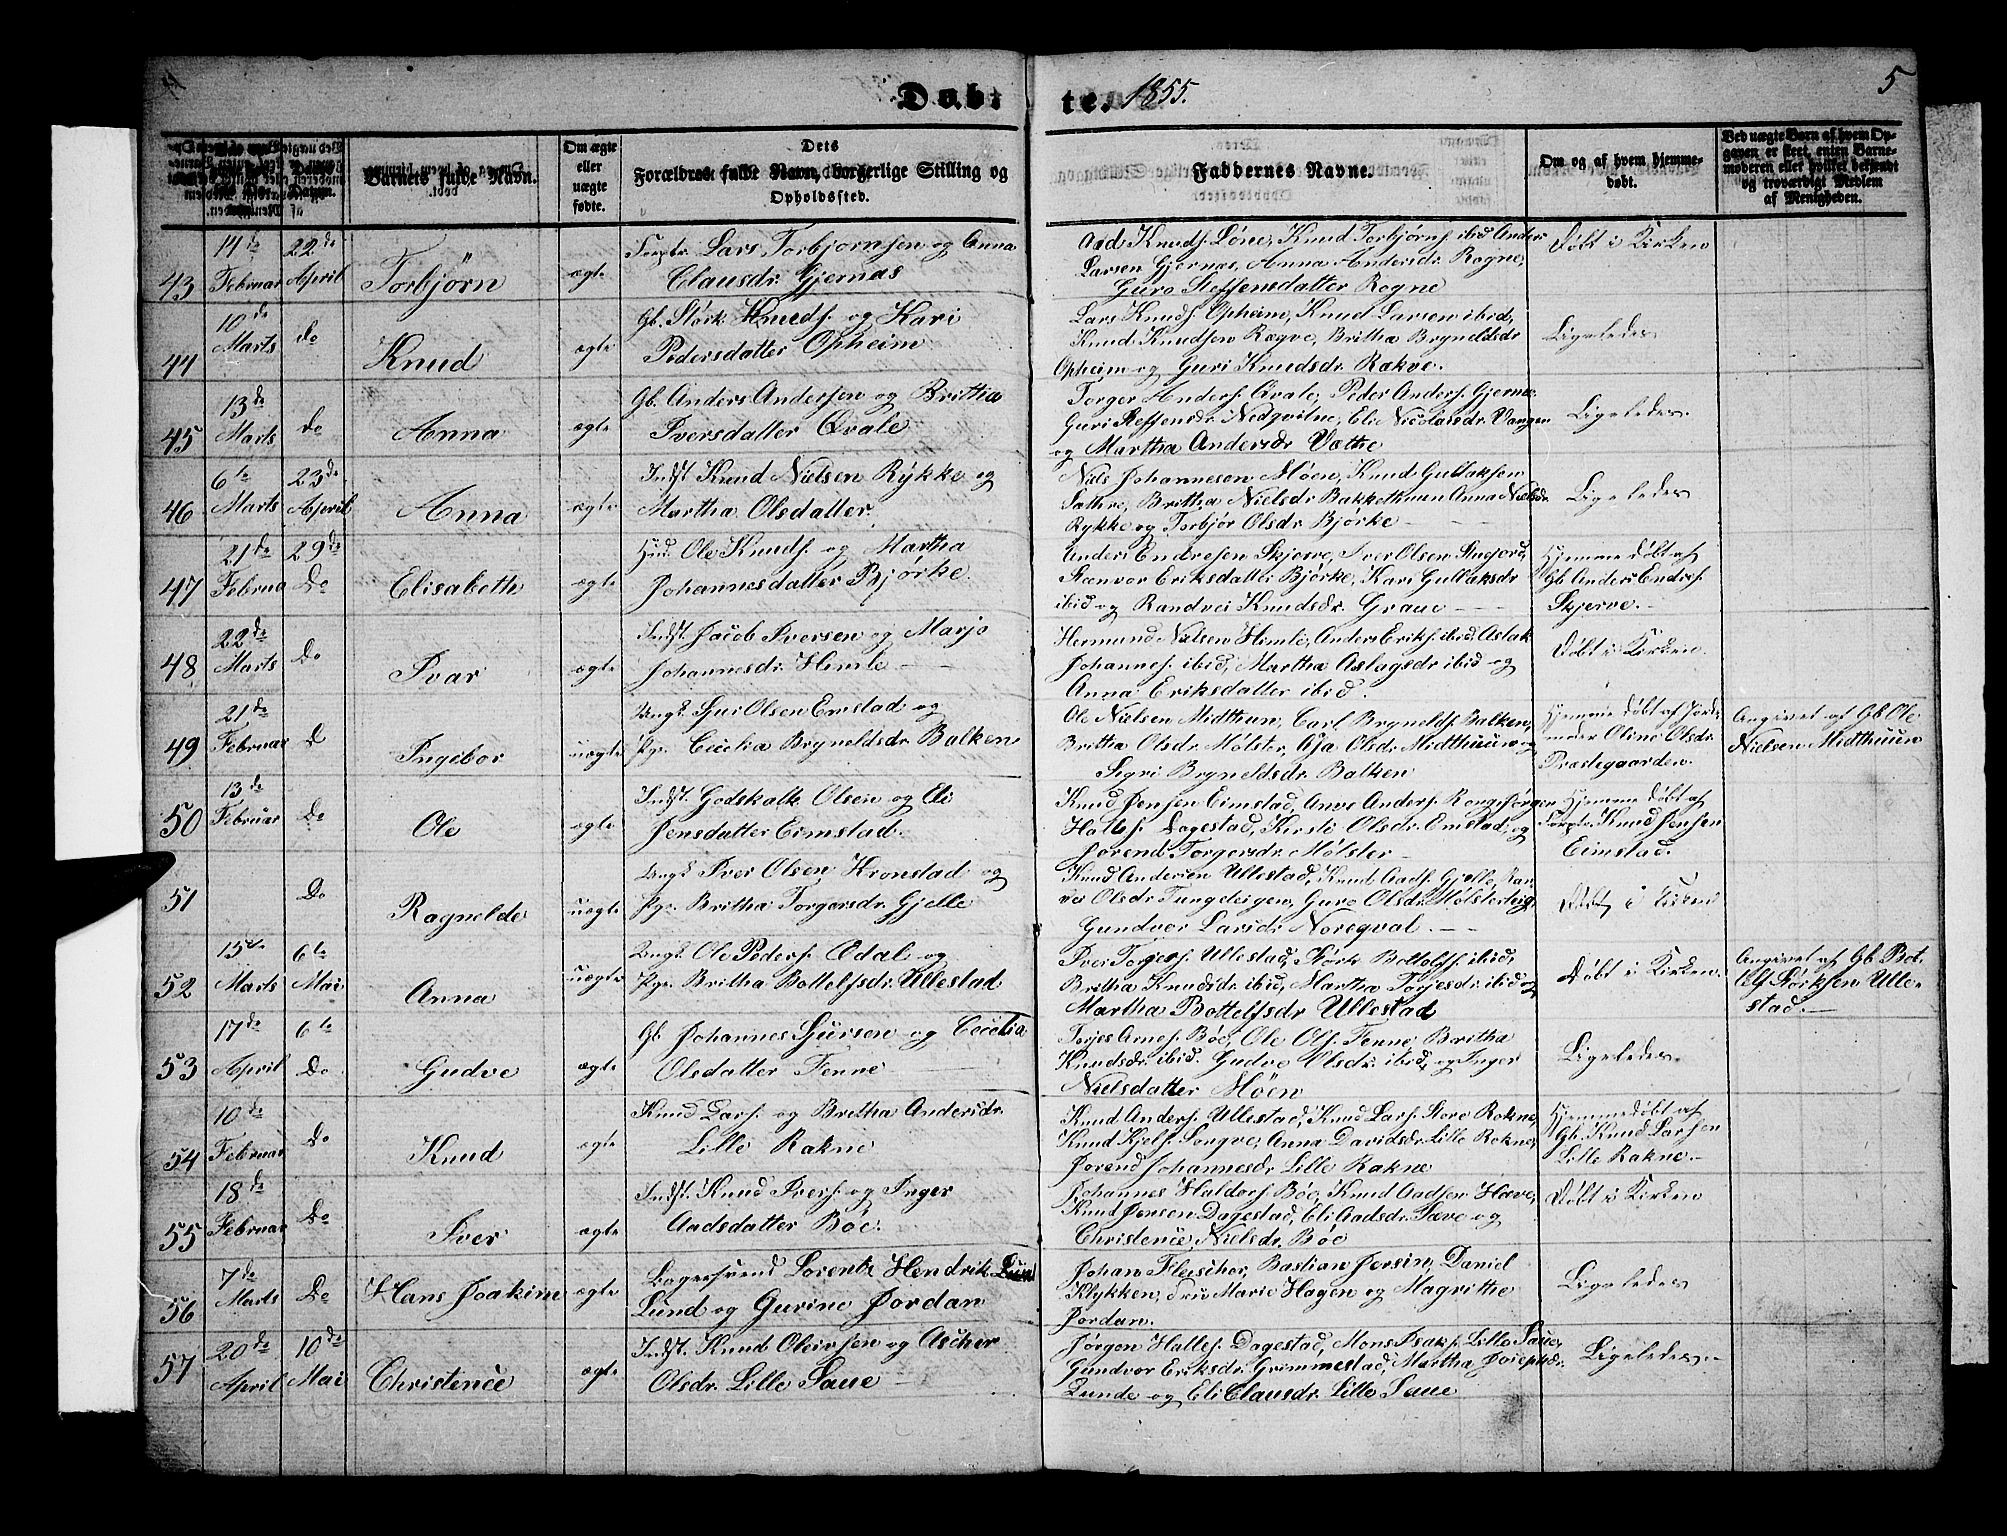 Døb-
te. 1855.
5
Barnets fulde Navn.
Om ægte
eller
uægte
fødte.
Dets
Forældres fulde Navn, borgerlige Stilling og
Opholdssted.
Faddernes Navne.
Om og af hvem hjemme-
døbt.
Ved uægte Barn af hvem Op-
gaven er skeet, enten Barne-
moderen eller hvilket bekjendt
og troværdigt Medlem
af Menigheden.
43
14de
Februar
22de
April
Torbjørn
ægte
Lars Torbjørnsen og Anna
Clausdr. Gjernæs
Aad Knuds. Løne, Knud Torbjørns. ibid Anders
Larsen Gjernæs, Anna Andersdr. Rogne,
Guro Steffensdatter Rogne
Døbt i Kirken
44
10de
Marts
do
Knud
ægte
Gb. Størk Knuds. og Kari
Pedersdatter Opheim
Lars Knuds. Opheim, Knud Larsen ibid,
Knud Knudsen Røgve, Britha Bryneldsdr
Opheim og Guri Knudsdr. Rækve.
Ligeledes
45
13de
Marts
do
Anna
ægte
Gb. Anders Andersen og Brittha
Iversdatter Qvale
Torger Anders. Qvale, Peder Anders. Gjernæ
Guri Steffensdr. Nedqvitne, Eli Nicolaisdr. Vangen
og Martha Andersdr Væthe
Ligeledes.
46
6te
Marts
23de
April
Anna
ægte
Indst Knud Nielsen Rykke og
Martha Olsdatter
Niels Johannesen Møen, Knud Gullaksen
Sathre, Britha Nielsdr Bakkethuun Anna Nielsdr
Rykke og Torbjør Olsdr. Bjørke
Ligeledes
47
21de
Februa
29de
Do
Elisabeth
ægte
Huus. Ole Knuds. og Martha
Johannesdatter Bjørke
Anders Endresen Skjerve, Iver Olsen
Steenvor Eriksdatter Bjørke, Kari Gullaksdr
ibid og Randvei Knudsdr. Graue
Hjemmedøbt af
Gb Anders Endres.
Skjerve.
48
22de
Marts
Do
Ivar
ægte
Indst. Jacob Iversen og Marjo
Johannesdr. Himle
Hermund Nielsen Himle, Anders Eriks. ibid. Aslak
Johannes. ibid, Martha Aslagsdr ibid og
Anna Eriksdatter ibid.
Døbt i Kirken.
49
21de
Februar
D
Ingebor
uægte
Ungk. Olsen Emstad og
Pge. Cecelia Bryneldsdr Balken
Ole Nielsen Midthun, Carl Brynelds. Balken,
Britha Olsdr. Mølster, Olsdr Midthuun og
Sigri Bryneldsdr. Balken
Hjemmedøbt af Jord-
moder Oline Olsdr
Præstegaarden.
Angivet af Gb. Ole
Nielsen Midthuun
50
13de
Februar
Do
Ole
ægte
Indst. Godskalk Olsen og Eli
Jensdatter Eimstad.
Knud Jensen Eimstad, Arve Anders. Ronge Jørgen
Halles. Dagestad, Kirsti Olsdr. Emstad, og
Jorend Torgersdr. Mølster
Hjemmedøbt af
Knud Jensen
Eimstad.
51
Do
Ragnelde
uægte
Ungk Iver Olsen Kronstad og
Pge. Britha Torgersdr. Gjelle
Knud Andersen Ullestad, Knud Aads. Gjelle, Ran-
vei Olsdr Tungeteigen, Guro Olsdr Mølsterteig,
Gundvor Larsdr. Noreqval.
Døbt i Kirken
52
15de
Marts
6te
Mai
Anna
uægte
Ungk. Ole Peders. Ødal og
Pge. Britha Bottelfsdr. Ullestad
Iver Torjes. Ullestad, Størk Bottolfs. ibid,
Britha Knudsdr ibid, Martha Torjesdr. ibid og
Martha Bottelfsdr Ullestad
Døbt i Kirken.
Angivet af Gb. Bot-
telf Størksen Ulle-
stad.
53
17de
April
6te
Do
Gudve
ægte
Gb Johannes Sjursen og Cecelia
Olsdatter Tenne
Torjes Arnes. Bøe, Ole Ols. Tenne, Britha
Knudsdr. ibid. Gudve Olsdr. ibid, og Inger
Nielsdatter Møen
Ligeledes
54
10de
Februar
Do
Knud
ægte
Knud Lars. og Britha Andersdr.
Lille Rakne
Knud Anders. Ullestad, Knud Lars. Store Rokne,
Knud Kjels. Songve, Anna Davidsdr. Lille Rokne,
Jorend Johannesdr Lille Rakne
Hjemmedøbt af
Gb. Knud Larsen
Lille Rakne.
55
18de
Februar
Do
Iver
ægte
Indst. Knud Ivers. og Inger
Aadsdatter Bøe.
Johannes Haldors. Bøe, Knud Aadsen Hæve,
Knud Jensen Dagestad, Eli Aadsdr. Sæve og
Christence, Nielsdr. Bøe
Døbt i Kirken
56
7de
Marts
Do
Hans Joakim
ægte
Bagersvend Lorentz Hendrik
Lund og Gurine Jordan
Johan Fleischer, Bastian Jersin, Daniel
Klykken, Marie Hagen og Magrithe
Jordan.
Ligeledes
57
20de
April
10de
Mai
Christence
ægte
Indst. Knud Oleivsen og Ascher
Olsdr. Lille Saue
Jørgen Halles. Dagestad, Mons Isaks. Lille Saue,
Gundvor Eriksdr. Grimmestad, Martha Josephsdr.
Lunde og Eli Clausdr. Lille Saue
Ligeledes.